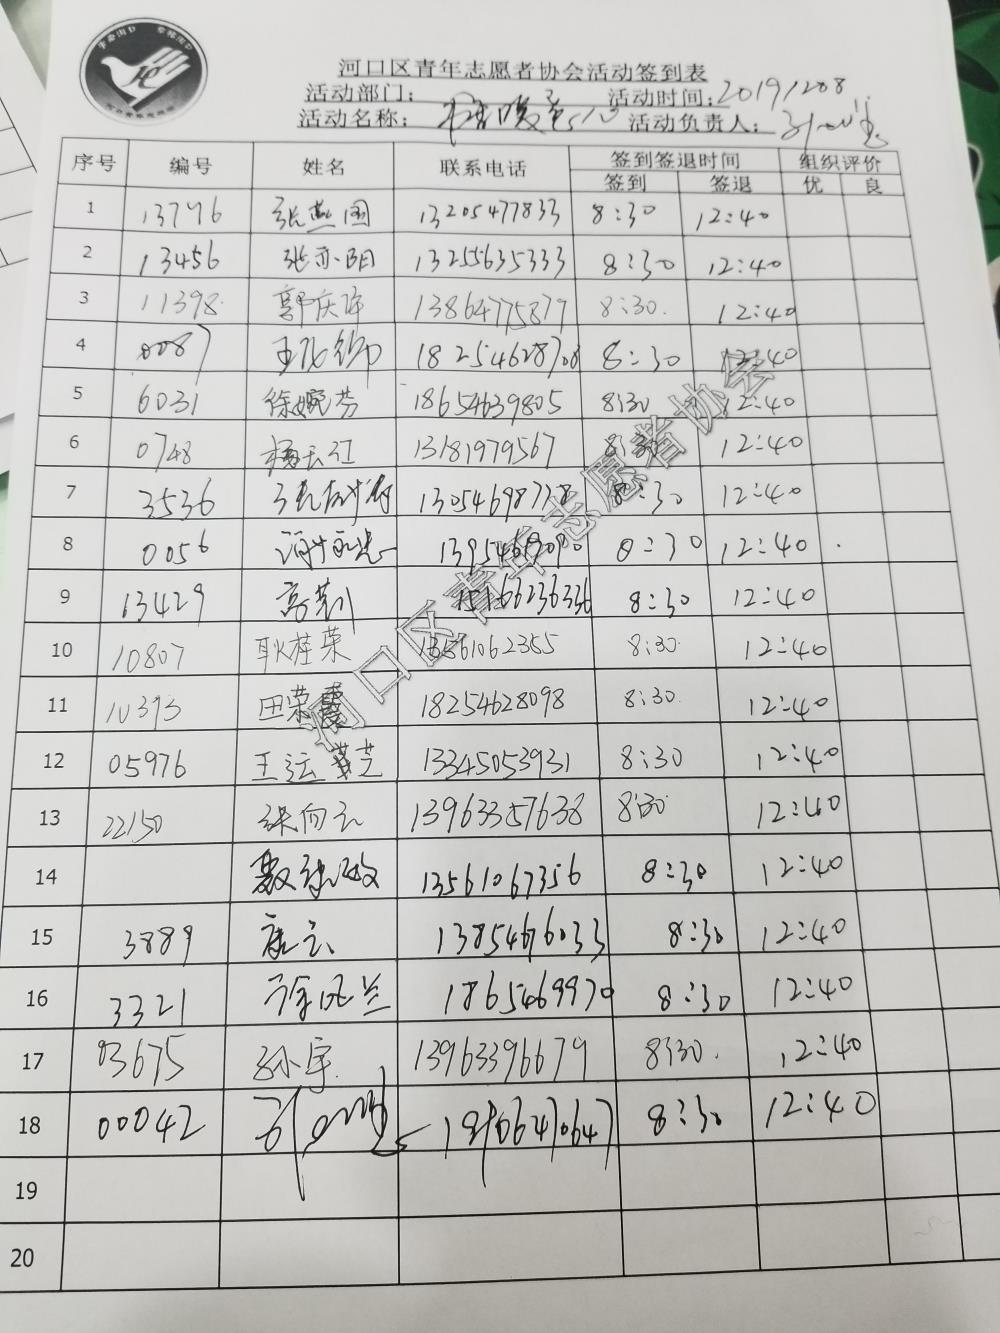 河口区青年志愿者协会活动签到表
活动部门： 活动时间：20191208
活动名称： 活动负责人：
序号 编号 姓名 联系电话 签到签退时间 组织评价
签到 签退 优 良
1 13796 张燕国 13205477833 8:30 12:40
2 13456 张亦阳 13255635333 8:30 12:40
3 11398 郭庆海 13864775877 8:30 12:40
4 0087 18254628708 8:30 12:40
5 6031 徐婉芬 18654639805 8:30 12:40
6 0748 梅云红 13181979567 8:30 12:40
7 3536 13054698778 8:30 12:40
8 0056 8:30 12:40
9 13429 高荣 15166236336 8:30 12:40
10 10807 耿桂荣 13561062355 8:30 12:40
11 10393 田荣霞 18254628098 8:30 12:40
12 05976 王运芝 13345053931 8:30 12:40
13 22150 张向云 13963357638 8:30 12:40
14 13561067356 8:30 12:40
15 3889 康云 13854676033 8:30 12:40
16 3321 徐凤兰 1865469970 8:30 12:40
17 03675 孙宇 13963396679 8:30 12:40
18 00042 8:30 12:40
19
20
河口区青年志愿者协会